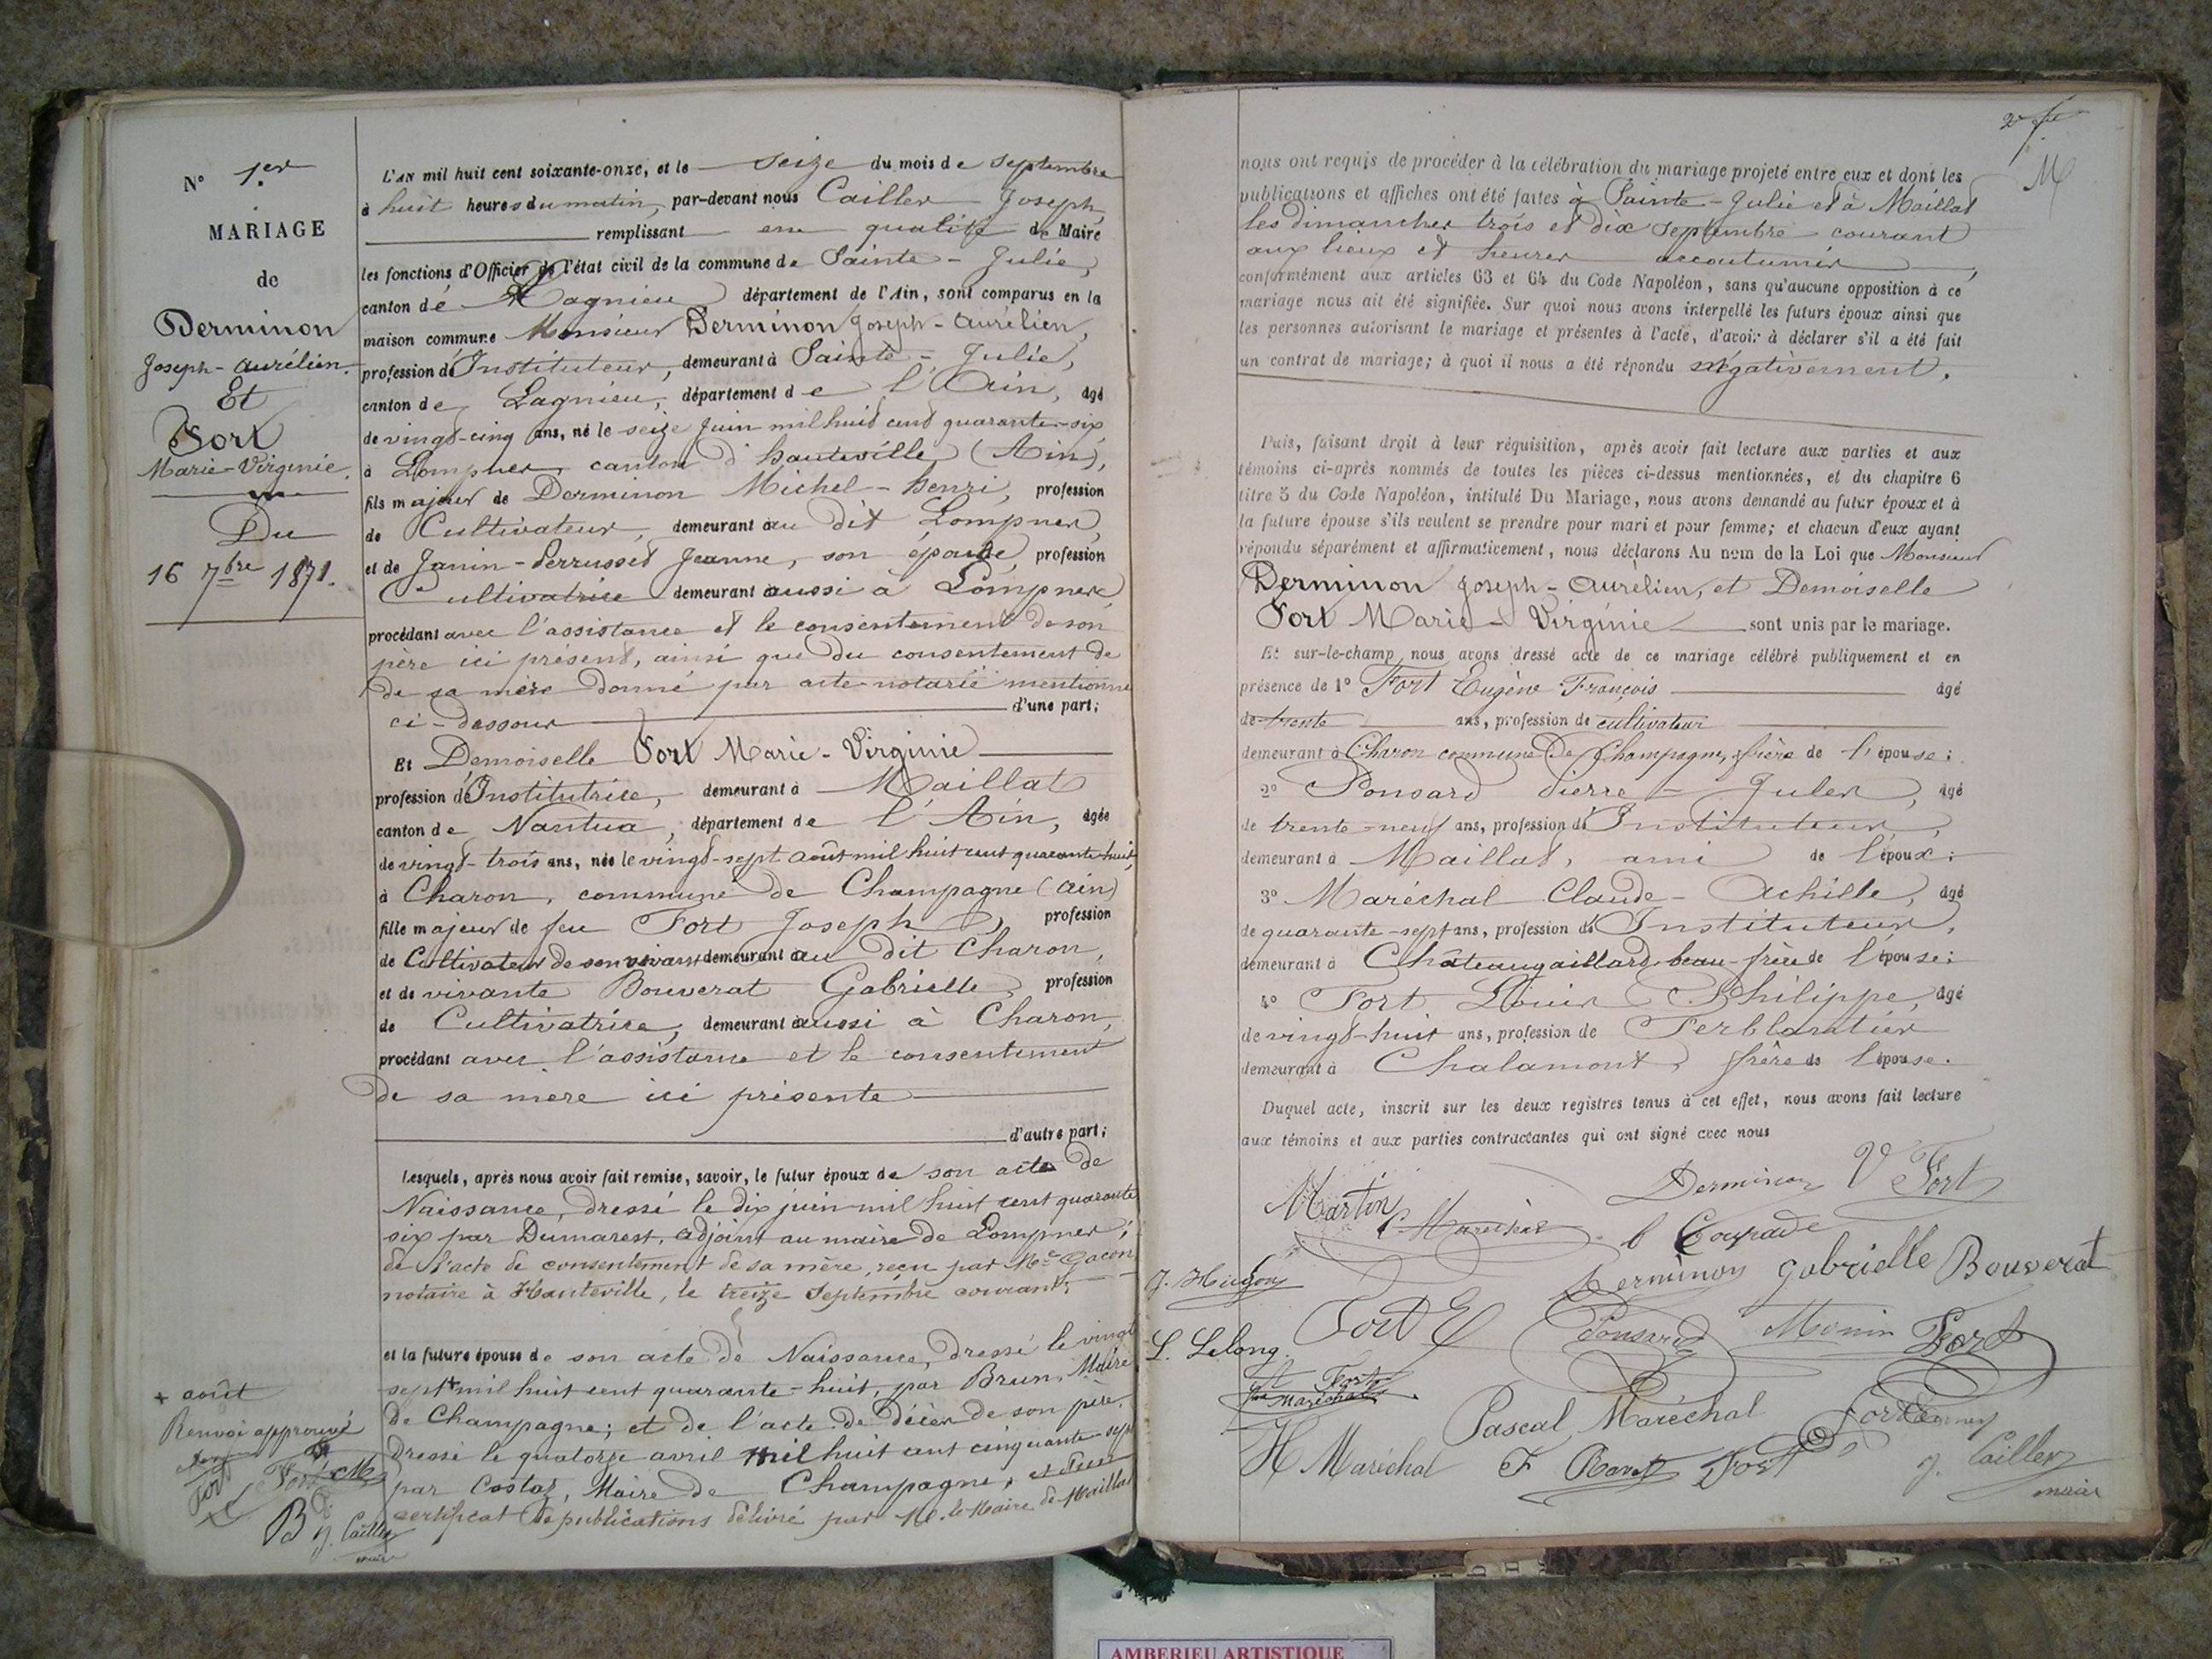 N° 1er
MARIAGE
de
Derminon
Joseph-Aurélien.
Et
Fort
Marie-Virginie.
Du
16 7bre 1871.
L'AN mil huit cent soixante-onze, et le seize du mois de septembre
à huit heures du matin, par-devant nous Cailler Joseph,
remplissant en qualité de Maire
les fonctions d'Officier de l'état civil de la commune de Sainte-Julie,
canton de Lagnieu département de l'Ain, sont comparus en la
maison commune Monsieur Derminon Joseph-Aurélien,
profession d'Instituteur, demeurant à Sainte-Julie,
canton de Lagnieu, département de l'Ain, âgé
de vingt-cinq ans, né le seize Juin mil huit cent quarante-six
à Lompnes, canton d'hauteville (Ain),
fils majeur de Derminon Michel-henri, profession
de Cultivateur, demeurant au dit Lompnes,
et de Janin-Perrusset Jeanne, son épouse, profession
Cultivatrice demeurant aussi à Lompnes
procédant avec l'assistance et le consentement de son
père ici présent, ainsi que du consentement de
de sa mère donné par acte notarié mentionné
ci-dessous d'une part;
Et Demoiselle Fort Marie-Virginie
profession d'Institutrice, demeurant à Maillat
canton de Nantua, département de l'Ain, âgée
de vingt-trois ans, née le vingt-sept août mil huit cent quarante-huit,
à Charon, commune de Champagne (Ain)
fille majeur de feu Fort Joseph, profession
de Cultivateur de son vivant demeurant au dit Charon,
et de vivante Bouverat Gabrielle, profession
de Cultivatrice, demeurant aussi à Charon,
procédant avec l'assistance et le consentement
de sa mère ici présente
d'autre part;
Lesquels, après nous avoir fait remise, savoir, le futur époux de son acte de
Naissance, dressé le dix juin mil huit cent quarante
six par Dumarest, adjoint au maire de Lompnes;
de l'acte de consentement de sa mère, reçu par Me Gacon
notaire à Hauteville, le treize Septembre courant;
et la future épouse de son acte de Naissance, dressé le vingt
sept + mil huit cent quarante-huit, par Brun, Maire
de Champagne; et de l'acte de décès de son père,
dressé le quatorze avril mil huit cent cinquante-sept
par Costaz, Maire de Champagne, et d'un
certificat de publications délivré par M. le Maire de Maillat
+ août
Renvoi approuvé
Fort M
B G
J. Cailler
maire
2e f
M
nous ont requis de procéder à la célébration du mariage projeté entre eux et dont les
publications et affiches ont été faites à Sainte-Julie et à Maillat
les dimanches trois et dix Septembre courant
aux lieux et heures accoutumés,
conformément aux articles 63 et 64 du Code Napoléon, sans qu'aucune opposition à ce
mariage nous ait été signifiée. Sur quoi nous avons interpellé les futurs époux ainsi que
les personnes autorisant le mariage et présentes à l'acte, d'avoir à déclarer s'il a été fait
un contrat de mariage; à quoi il nous a été répondu négativement.
Puis, faisant droit à leur réquisition, après avoir fait lecture aux parties et aux
témoins ci-après nommés de toutes les pièces ci-dessus mentionnées, et du chapitre 6
titre 5 du Code Napoléon, intitulé Du Mariage, nous avons demandé au futur époux et à
la future épouse s'ils veulent se prendre pour mari et pour femme; et chacun d'eux ayant
répondu séparément et affirmativement, nous déclarons Au nom de la Loi que Monsieur
Derminon Joseph-Aurélien, et Demoiselle
Fort Marie-Virginie sont unis par le mariage.
Et sur-le-champ nous avons dressé acte de ce mariage célébré publiquement et en
présence de 1° Fort Eugène François âgé
de trente ans, profession de cultivateur
demeurant à Charon commune de Champagne, frère de l'épouse;
2° Ponsard Pierre-Jules, âgé
de trente-neuf ans, profession d'Instituteur,
demeurant à Maillat, ami de l'époux;
3° Maréchal Claude-Achille, âgé
de quarante-sept ans, profession d'Instituteur,
demeurant à Châteaugaillard beau-frère de l'épouse;
4° Fort Louis Philippe, âgé
de vingt-huit ans, profession de Ferblantier
demeurant à Chalamont, frère de l'épouse.
Duquel acte, inscrit sur les deux registres tenus à cet effet, nous avons fait lecture
aux témoins et aux parties contractantes qui ont signé avec nous
Derminon V Fort
Martin C. Maréchal
J. Hugon Derminon Gabrielle Bouverat
Fort E Ponsard Monin Fort
L. Lelong
Fort
Maréchal
Pascal Maréchal
H Maréchal F Fort J. Cailler
maire
AMBERIEU ARTISTIQUE